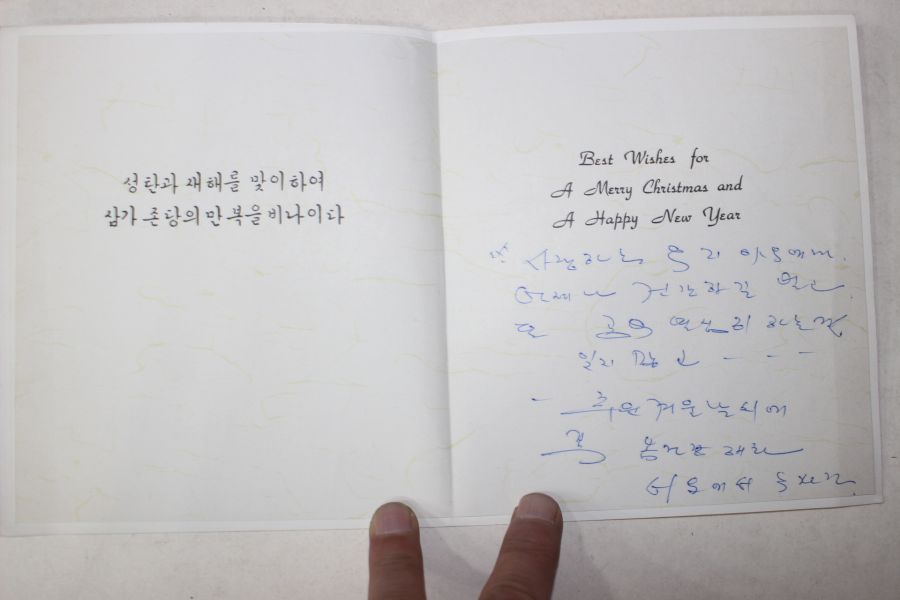 성탄과 새해를 맞이하여
삼가 존당의 만복을 비나이다
Best Wishes for
A Merry Christmas and
A Happy New Year
사랑하는 우리 아우에게.
언제나 건강하길 빌고
또 공부 열심히 하는것
잊지 말고 - - -
- 추운 겨울날씨에
꼭
서울에서